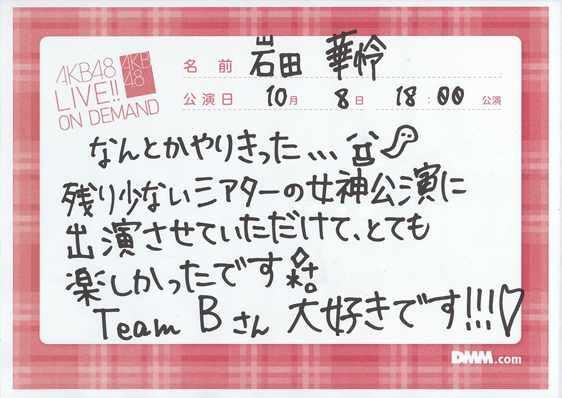 AKB48
LIVE!!
ON DEMAND
AKB
48
名前 岩田 華怜
公演日 10月 8日 18:00 公演
なんとかやりきった、、、
残り少ないシアターの女神公演に
出演させていただけて、とても
楽しかったです
Team Bさん 大好きです!!!♡
DMM.com